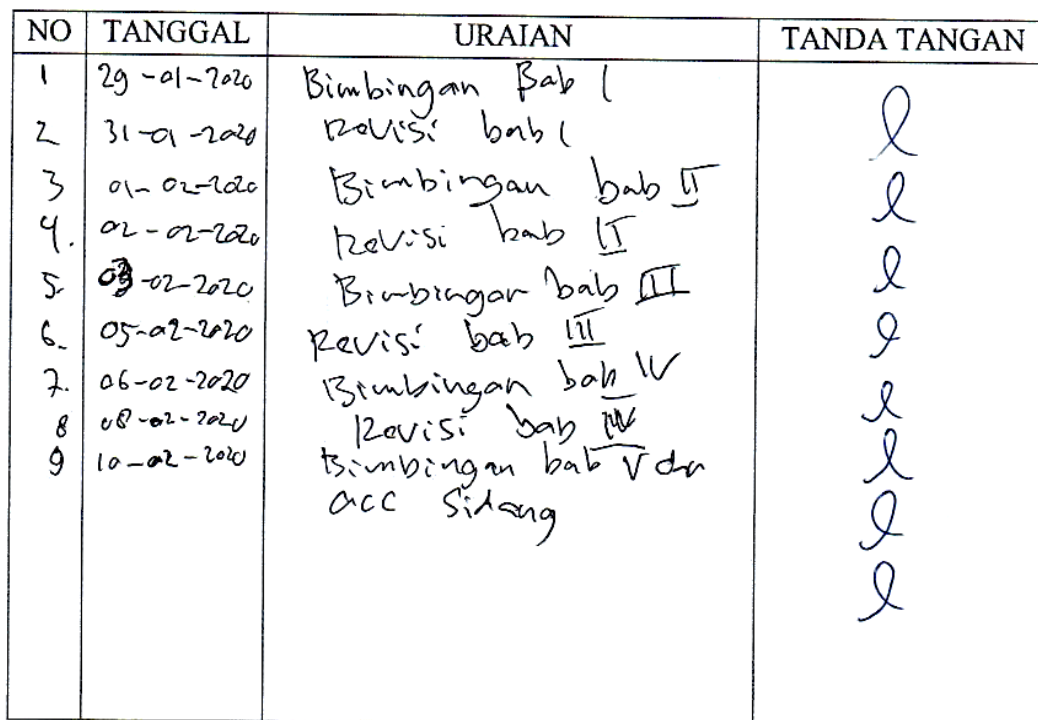 NO TANGGAL URAIAN TANDA TANGAN
1 29-01-2020 Bimbingan Bab I
2 31-01-2020 Revisi bab I
3 01-02-2020 Bimbingan bab II
4. 02-02-2020 Revisi bab II
5. 03-02-2020 Bimbingan bab III
6. 05-02-2020 Revisi bab III
7. 06-02-2020 Bimbingan bab IV
8 08-02-2020 Revisi bab IV
9 10-02-2020 Bimbingan bab V dan
acc Sidang